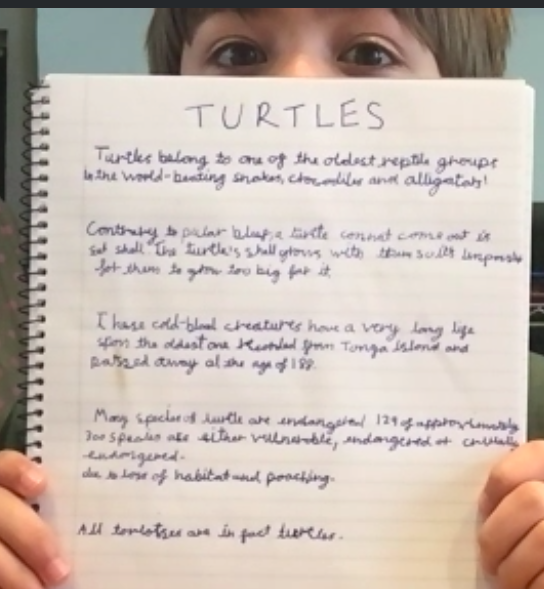 TURTLES
Turtles belong to one of the oldest reptile groups
in the world-beating snakes, crocodiles and alligators!
Contrary to pular blief, a turtle connot come out is
set shell. The turtle's shell grows with them so its impossible
for them to grow too big for it.
These cold-blood creatures have a very long life
span the oldest one recorded from Tonga island and
passed away at the age of 188.
Many species of turtle are endangered 129 of approximately
300 species are either vulnerable, endangered or critically
endangered.
due to lose of habitat and poaching.
All are in fact turtles.